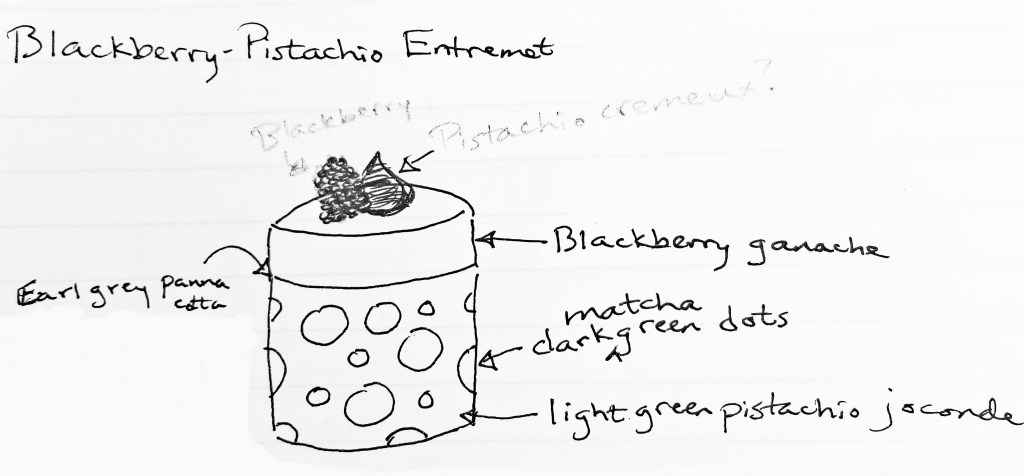 Blackberry-Pistachio Entremet
Blackberry
Pistachio cremeux?
Blackberry ganache
Earl grey panna
cotta
matcha
dark green dots
light green pistachio joconde